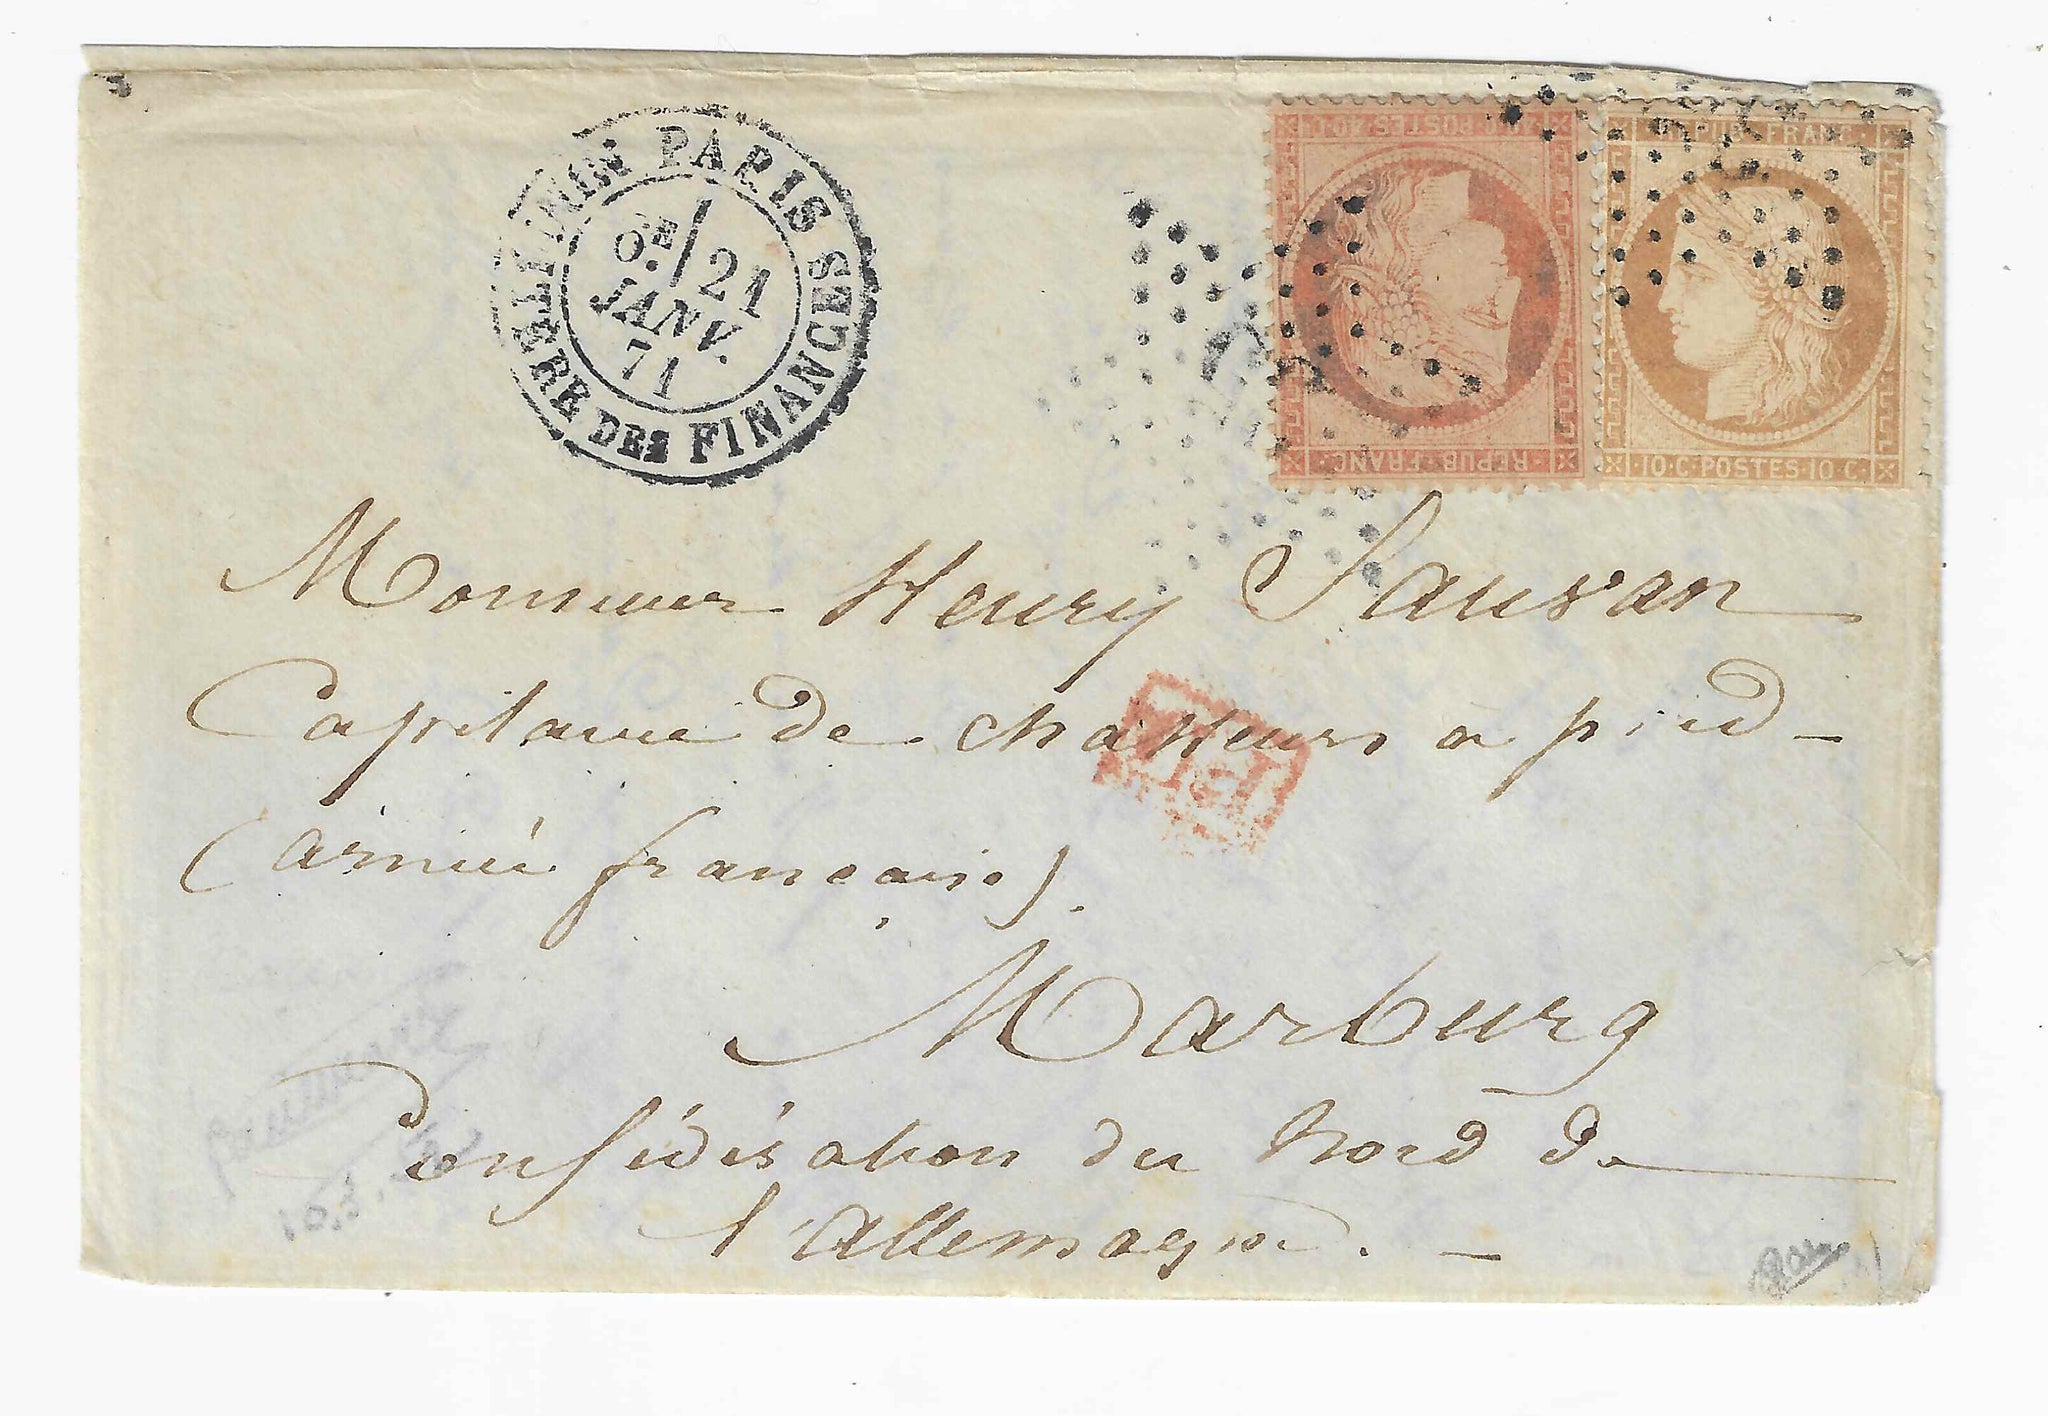 PARIS
MIN ERE DES FINANCES
6E/21
JANV.
71
40.C. POSTES 40.C.
REPUB. FRANC.
REPUB. FRANC.
10.C. POSTES 10.C.
Monsieur Henry Sauvan
Capitaine de chasseurs à pied -
PD
(armée française).
Marburg
Confédération du Nord de
l'Allemagne. -